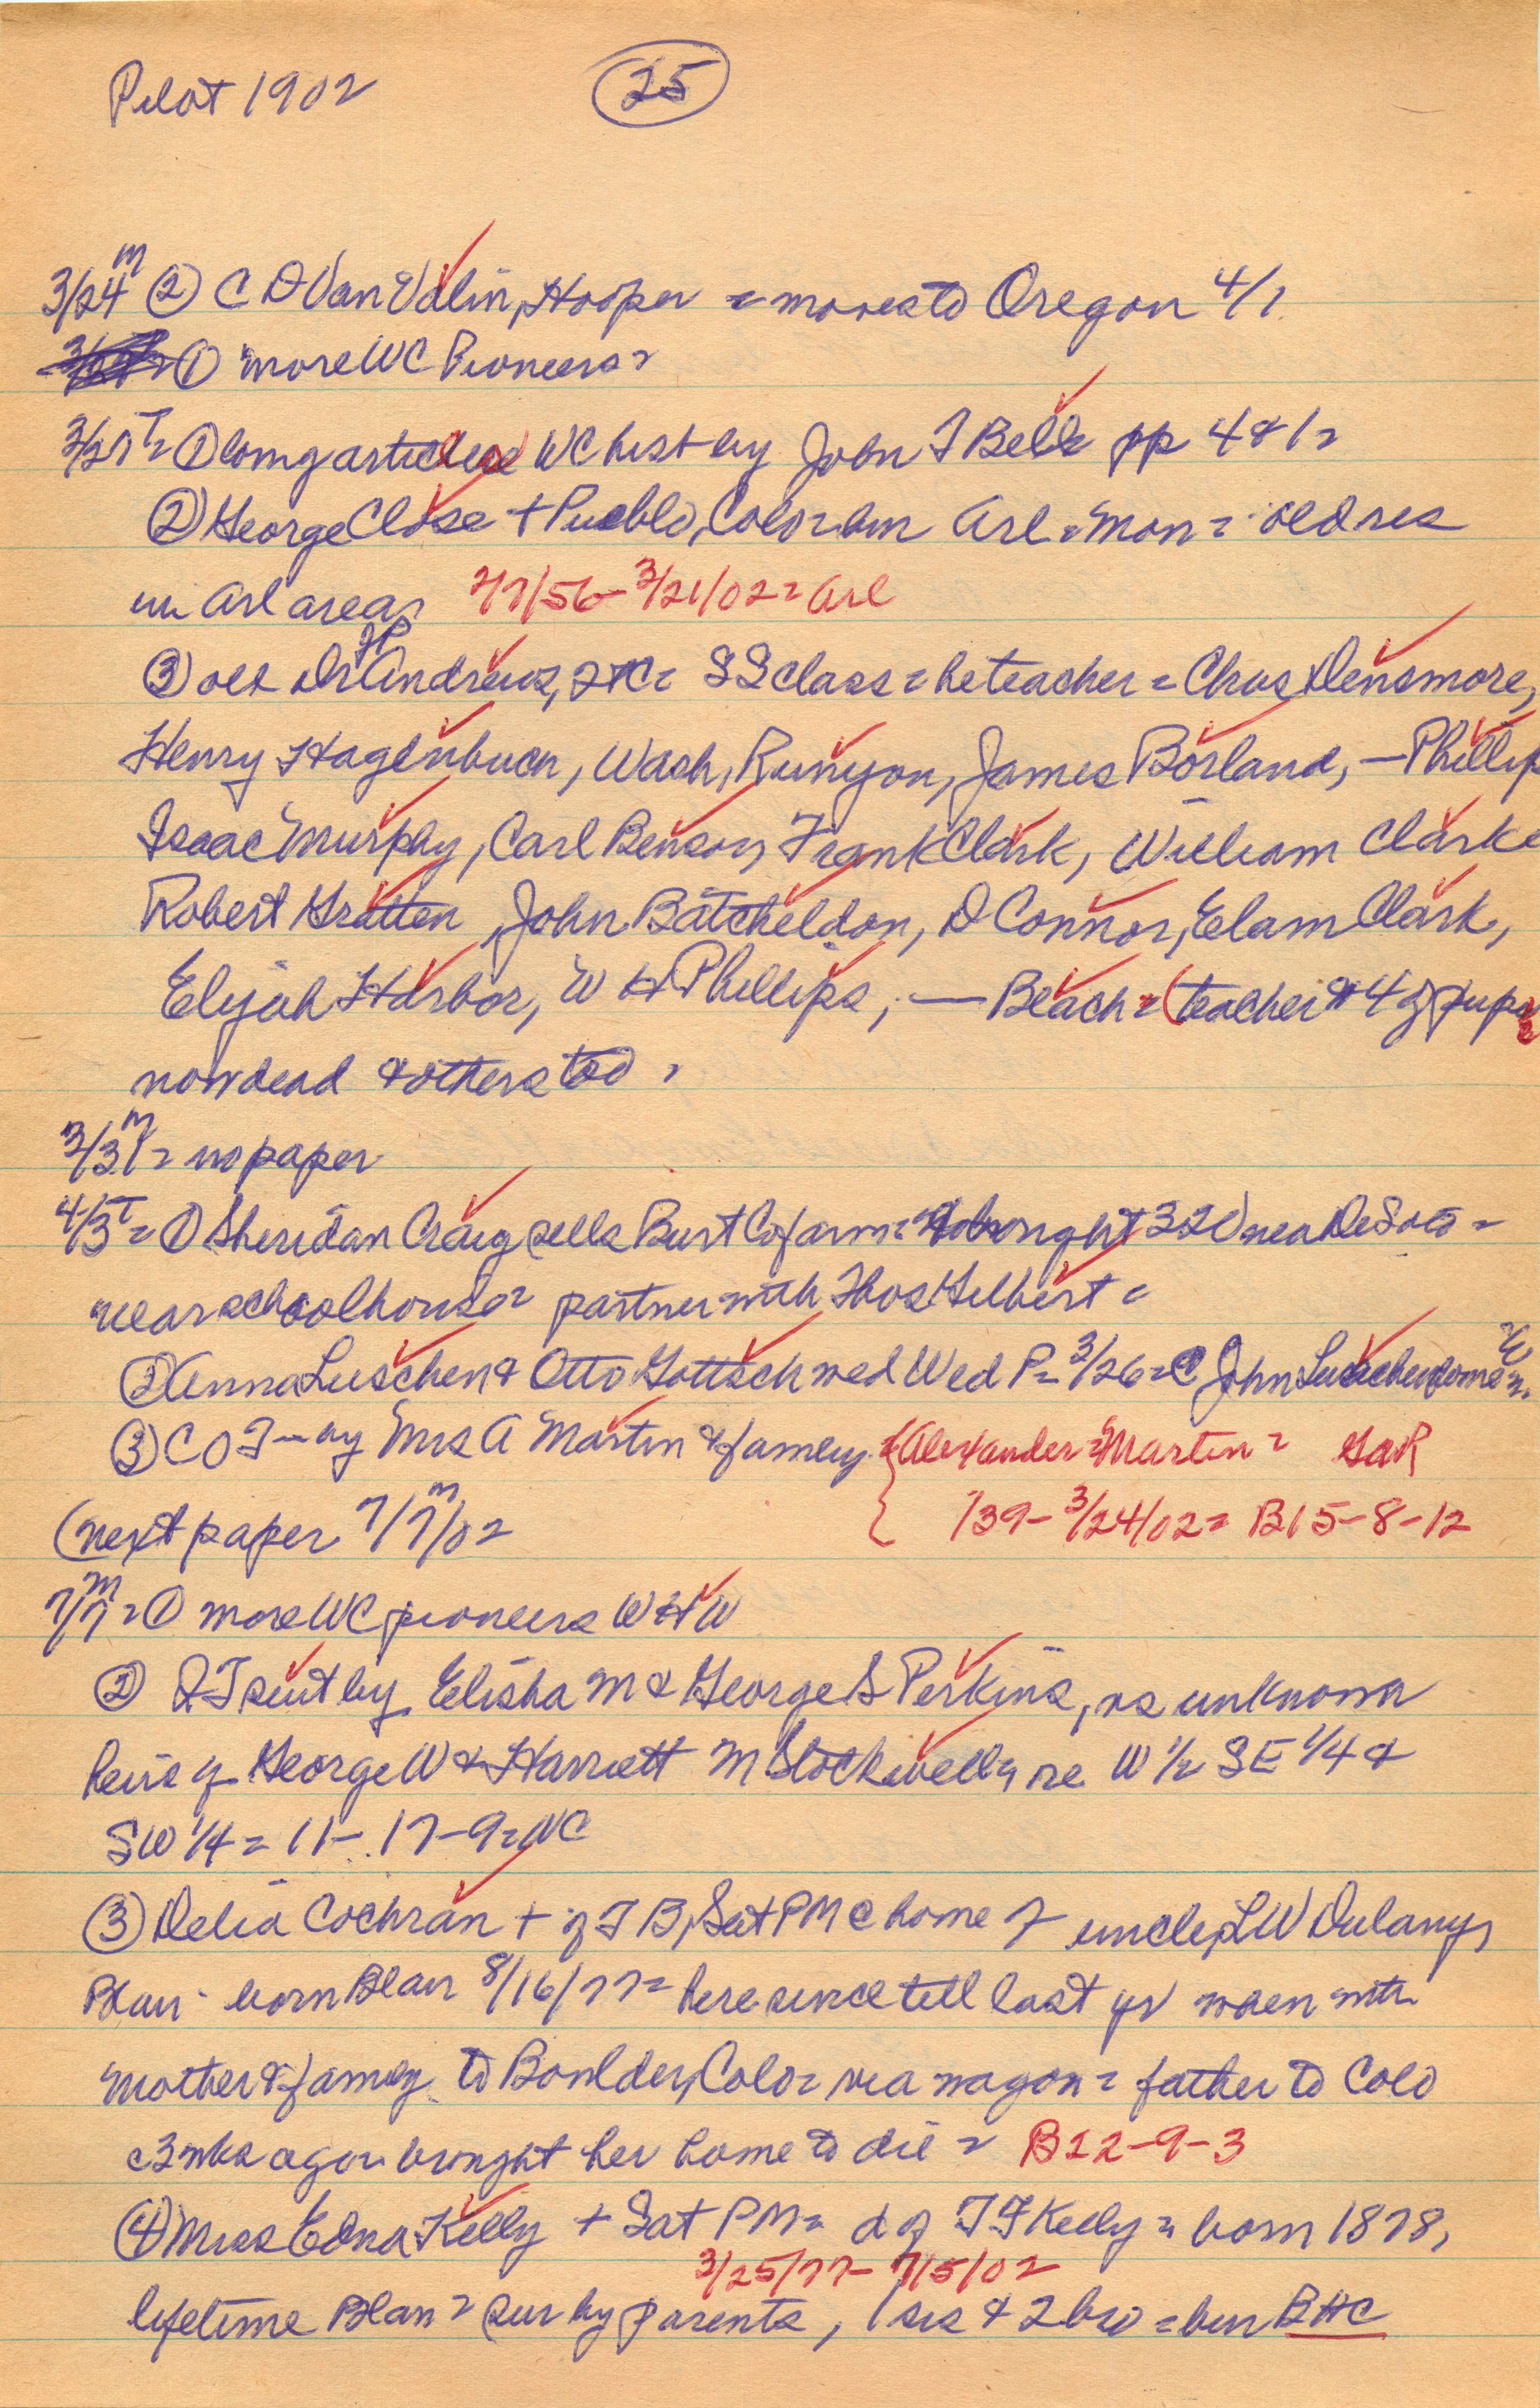 Pilot 1902 (25)
3/24 M ② C D Van Valin, Hooper = moves to Oregon 4/1
① more WC Pioneers =
3/27 T = ① long article WC hist by John T Bell pp 4 & 1 =
② George Close + Pueblo, Colo = bur Arl = Mon = old res
in Arl area = 2/7/56 - 3/21/02 = Arl
③ old Dr J P Andrews, SS class = he teacher = Chas Densmore,
Henry Hagenbuch, Wash, Runyon, James Borland, — Phillip
Isaac Murphy, Carl Benson, Frank Clark, William Clarke
Robert Gratten, John Batcheldon, D Connor, Elam Clark,
Elijah Harbor, W H Phillips, — Beach = (teacher & 4 of pups
now dead & others too =
3/31 M = no paper
4/3 T = ① Sheridan Craig sells Burt Co farm = bought 320 near DeSoto =
near schoolhouse = partner with Thos Gilbert =
② Anna Luschen & Otto Gottsch wed Wed P = 3/26 = @ John Luschen home =
③ C O T — by Mrs A Martin & family = {Alexander Martin = GAR
(next paper 7/7 M/02 { /39 - 3/24/02 = B15-8-12
7/7 M = ① more WC pioneers W H W
② Q T suit by Elisha M & George S Perkins, vs unknown
heirs of George W & Harriett M Stockwell, re W 1/2 SE 1/4 &
SW 1/4 = 11-17-9 = WC
③ Delia Cochran + of T B, Sat PM @ home of uncle, L W Dulany,
Blair - born Blair 8/16/77 = here since till last yr when with
mother & family to Boulder, Colo = via wagon = father to Colo
3 wks ago = brought her home to die = B22-9-3
④ Miss Edna Kelly + Sat PM = d of T F Kelly = born 1878,
3/25/77 - 7/5/02
lifetime Blair = sur by parents, 1 sis & 2 bro = bur BHC